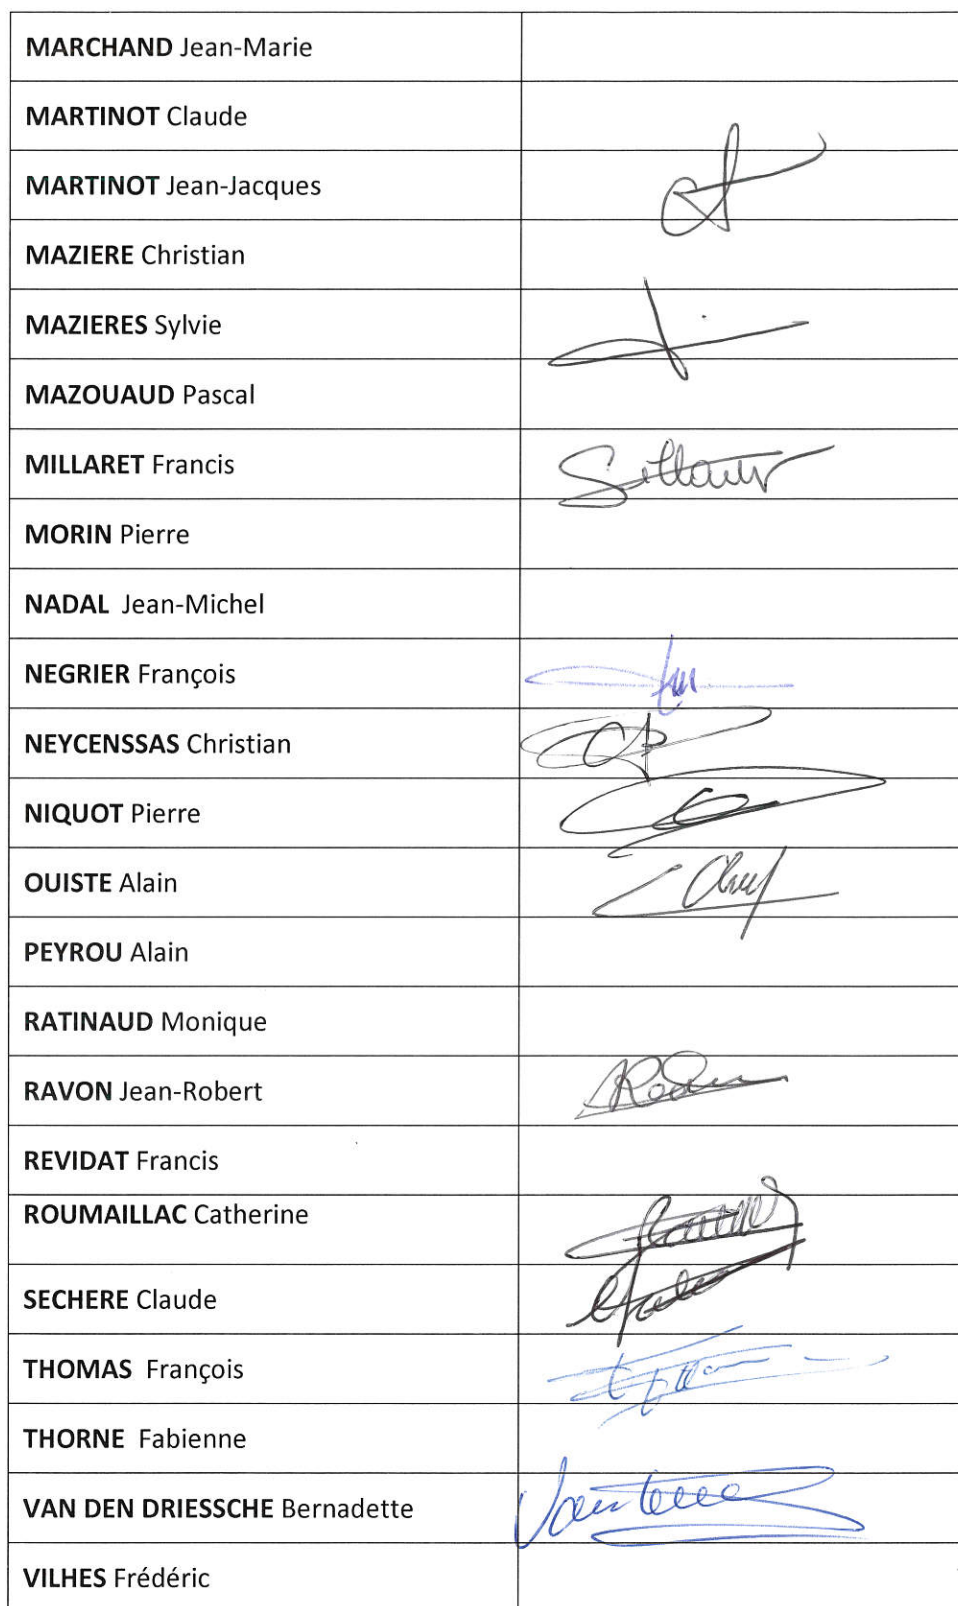 MARCHAND Jean-Marie
MARTINOT Claude
MARTINOT Jean-Jacques
MAZIERE Christian
MAZIERES Sylvie
MAZOUAUD Pascal
MILLARET Francis
MORIN Pierre
NADAL Jean-Michel
NEGRIER François
NEYCENSSAS Christian
NIQUOT Pierre
OUISTE Alain
PEYROU Alain
RATINAUD Monique
RAVON Jean-Robert
REVIDAT Francis
ROUMAILLAC Catherine
SECHERE Claude
THOMAS François
THORNE Fabienne
VAN DEN DRIESSCHE Bernadette
VILHES Frédéric